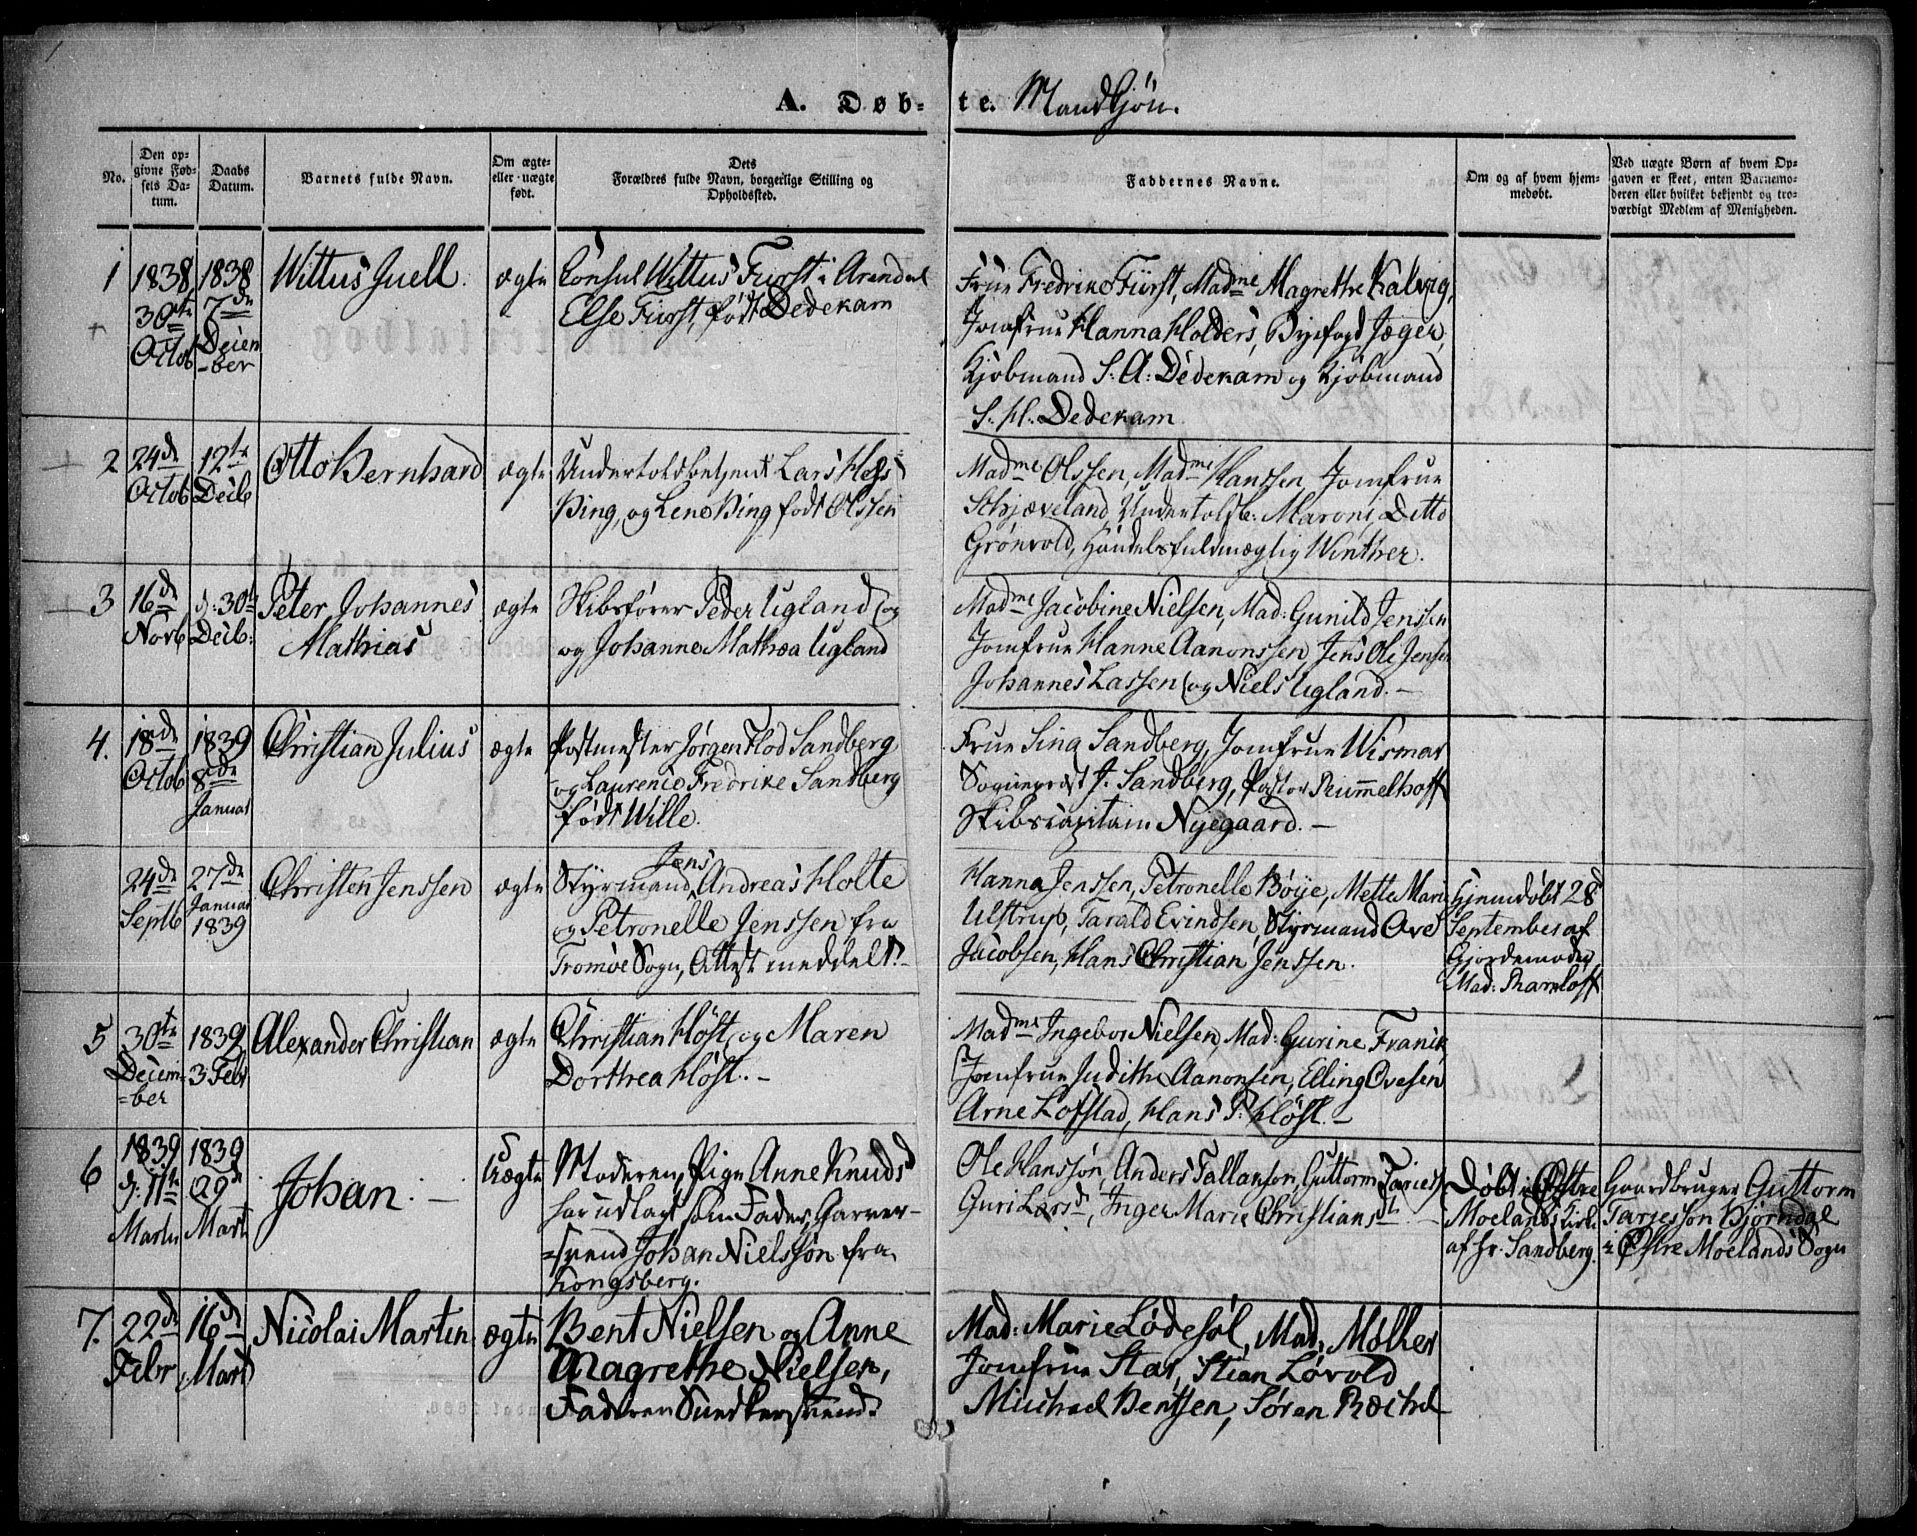 A. Døb-te. Mandkjøn.
No.
Den op-
givne Fød-
sels Da-
tum.
Daabs
Datum.
Barnets fulde Navn.
Om ægte-
eller uægte
født.
Dets
Forældres fulde Navn, borgerlige Stilling og
Opholdssted.
Faddernes Navne.
Om og af hvem hjem-
medøbt.
Ved uægte Børn af hvem Op-
gaven er skeet, enten Barnemo-
deren eller hvilket bekjendt og tro-
værdigt Medlem af Menigheden.
1
1838
30te
Octob
1838
7de
Decem
-ber
Wittus Juell.
ægte
Consul Wittus Furst i Arendal
Else Fürst, født Dedekam
Frue Fredrike Fürst, Madme Magrethe Kalvig,
Jomfrue Hanna Holders, Byefogd Jæger,
Kjøbmand S. A: Dedekam og Kjøbmand
S. H. Dedekam
2
24de
Octob
12te
Decb
Otto Bernhard
ægte
Undertoldbetjent Lars Hess
Bing, og Lene Bing født Olssen
Madme Olssen, Madme Hanssen, Jomfrue
Schjæveland, Undertoldb: Maroni, Ditto
Grønvold, Handelsfuldmægtig Winther.
3
16de
Novb
d: 30te
Decb:
Peter Johannes
Mathias
ægte
Skibsfører Peder Ugland og
og Johanne Mathea Ugland
Madme Jacobine Nielsen, Mad: Gunild Jenssen
Jomfrue Hanne Aanonssen, Jens Ole Jensen
Johannes Lassen og Niels Ugland. -
4.
18de
Octob
1839
8de
Januar
Christian Julius
ægte
Postmester Jørgen Flod Sandberg
og Laurence Fredrike Sandberg
født Wille.
Frue Sina Sandberg, Jomfrue Wismar
Sogneprest J. Sandberg, Pastor Rummelhoff
Skibscapitain Nyegaard. -
24de
Septb
27de
Januar
1839
Christen Jenssen
ægte
Jens
Styrmand Andreas Holte
og Petronelle Jenssen fra
Tromøe Sogn, Attest meddelt. -
Hanna Jenssen, Petronelle Bøije, Mette Marie
Ulstrup, Tarald Evindsen, Styrmand Ove
Jacobsen, Hans Christian Jenssen.
Hjemdøbt 28d
September af
Gjordemoder
Mad:
5
30te
Decem-
=ber
1839
3 Febr
Alexander Christian
ægte
Christian Høst, og Maren
Dorthea Høst. -
Madme Ingebor Nielsen, Mad: Gurine Franck
Jomfrue Judithe Aanonsen, Elling Ovesen
Arne Lofstad, Hans P: Høst. -
6
1839
d: 11te
Marts
1839
29d
Mart
Johan. -
Uægte
Moderen, Pige Anne Knudsd
har udlagt som Fader, Garver-
=svend Johan Nielssøn fra
Kongsberg.
Ole Hanssøn, Anders Tallassøn, Guttorm Tariess
Guri Larsd, Inger Marie Christiansdt. -
Døbt i Østre
Moelands Kirke
af Hr. Sandberg.
Gaardbruger Guttorm
Tarjessøn Bjørndal
i Østre Moelands Sogn
7.
22de
Febr
16de
Mart
Nicolai Martin
ægte
Bent Nielsen og Anne
Magrethe Nielsen,
Faderen Snedkersvend.
Mad: Marie Lødesøl, Mad: Møller
Jomfrue Star, Stian Løvold
Michael Bentsen, Søren